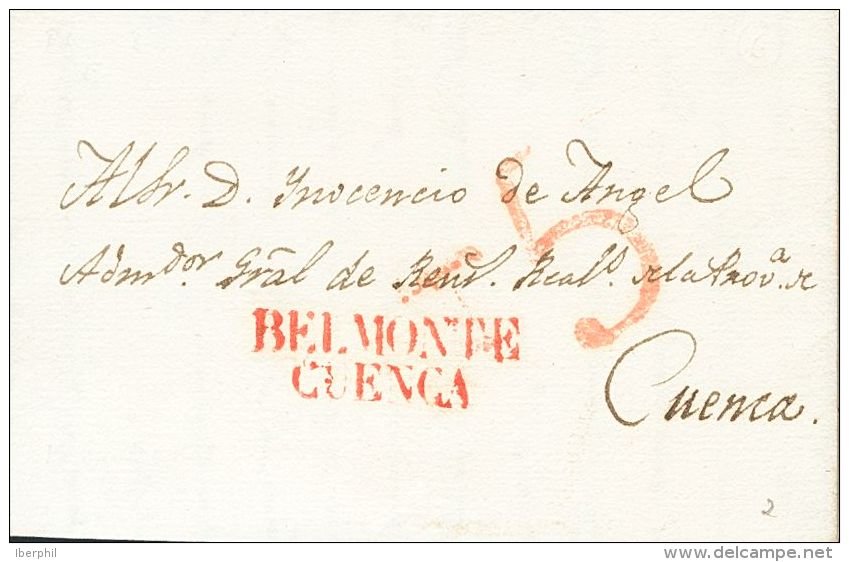 Al Sr. D. Ynocencio de Angel
Adm.dor Gral de Rent.s Real.s de la Prov.a de
5
BELMONTE
CUENCA
Cuenca.
2
Iberphil
www.delcampe.net